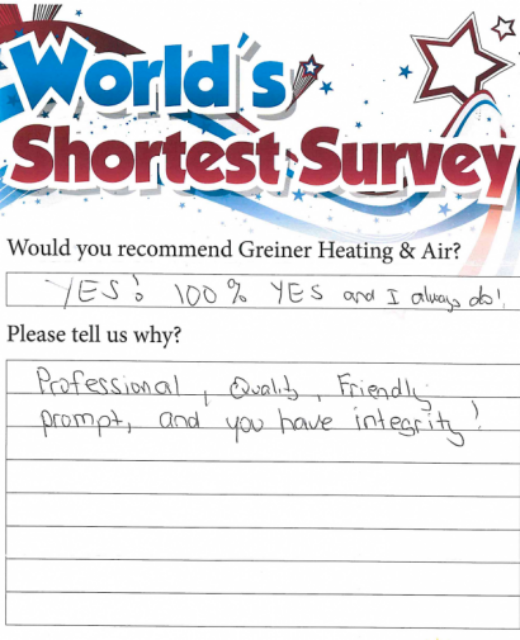 World's
Shortest Survey
Would you recommend Greiner Heating & Air?
YES! 100% YES and I always do!
Please tell us why?
Professional, Quality, Friendly
prompt, and you have integrity!